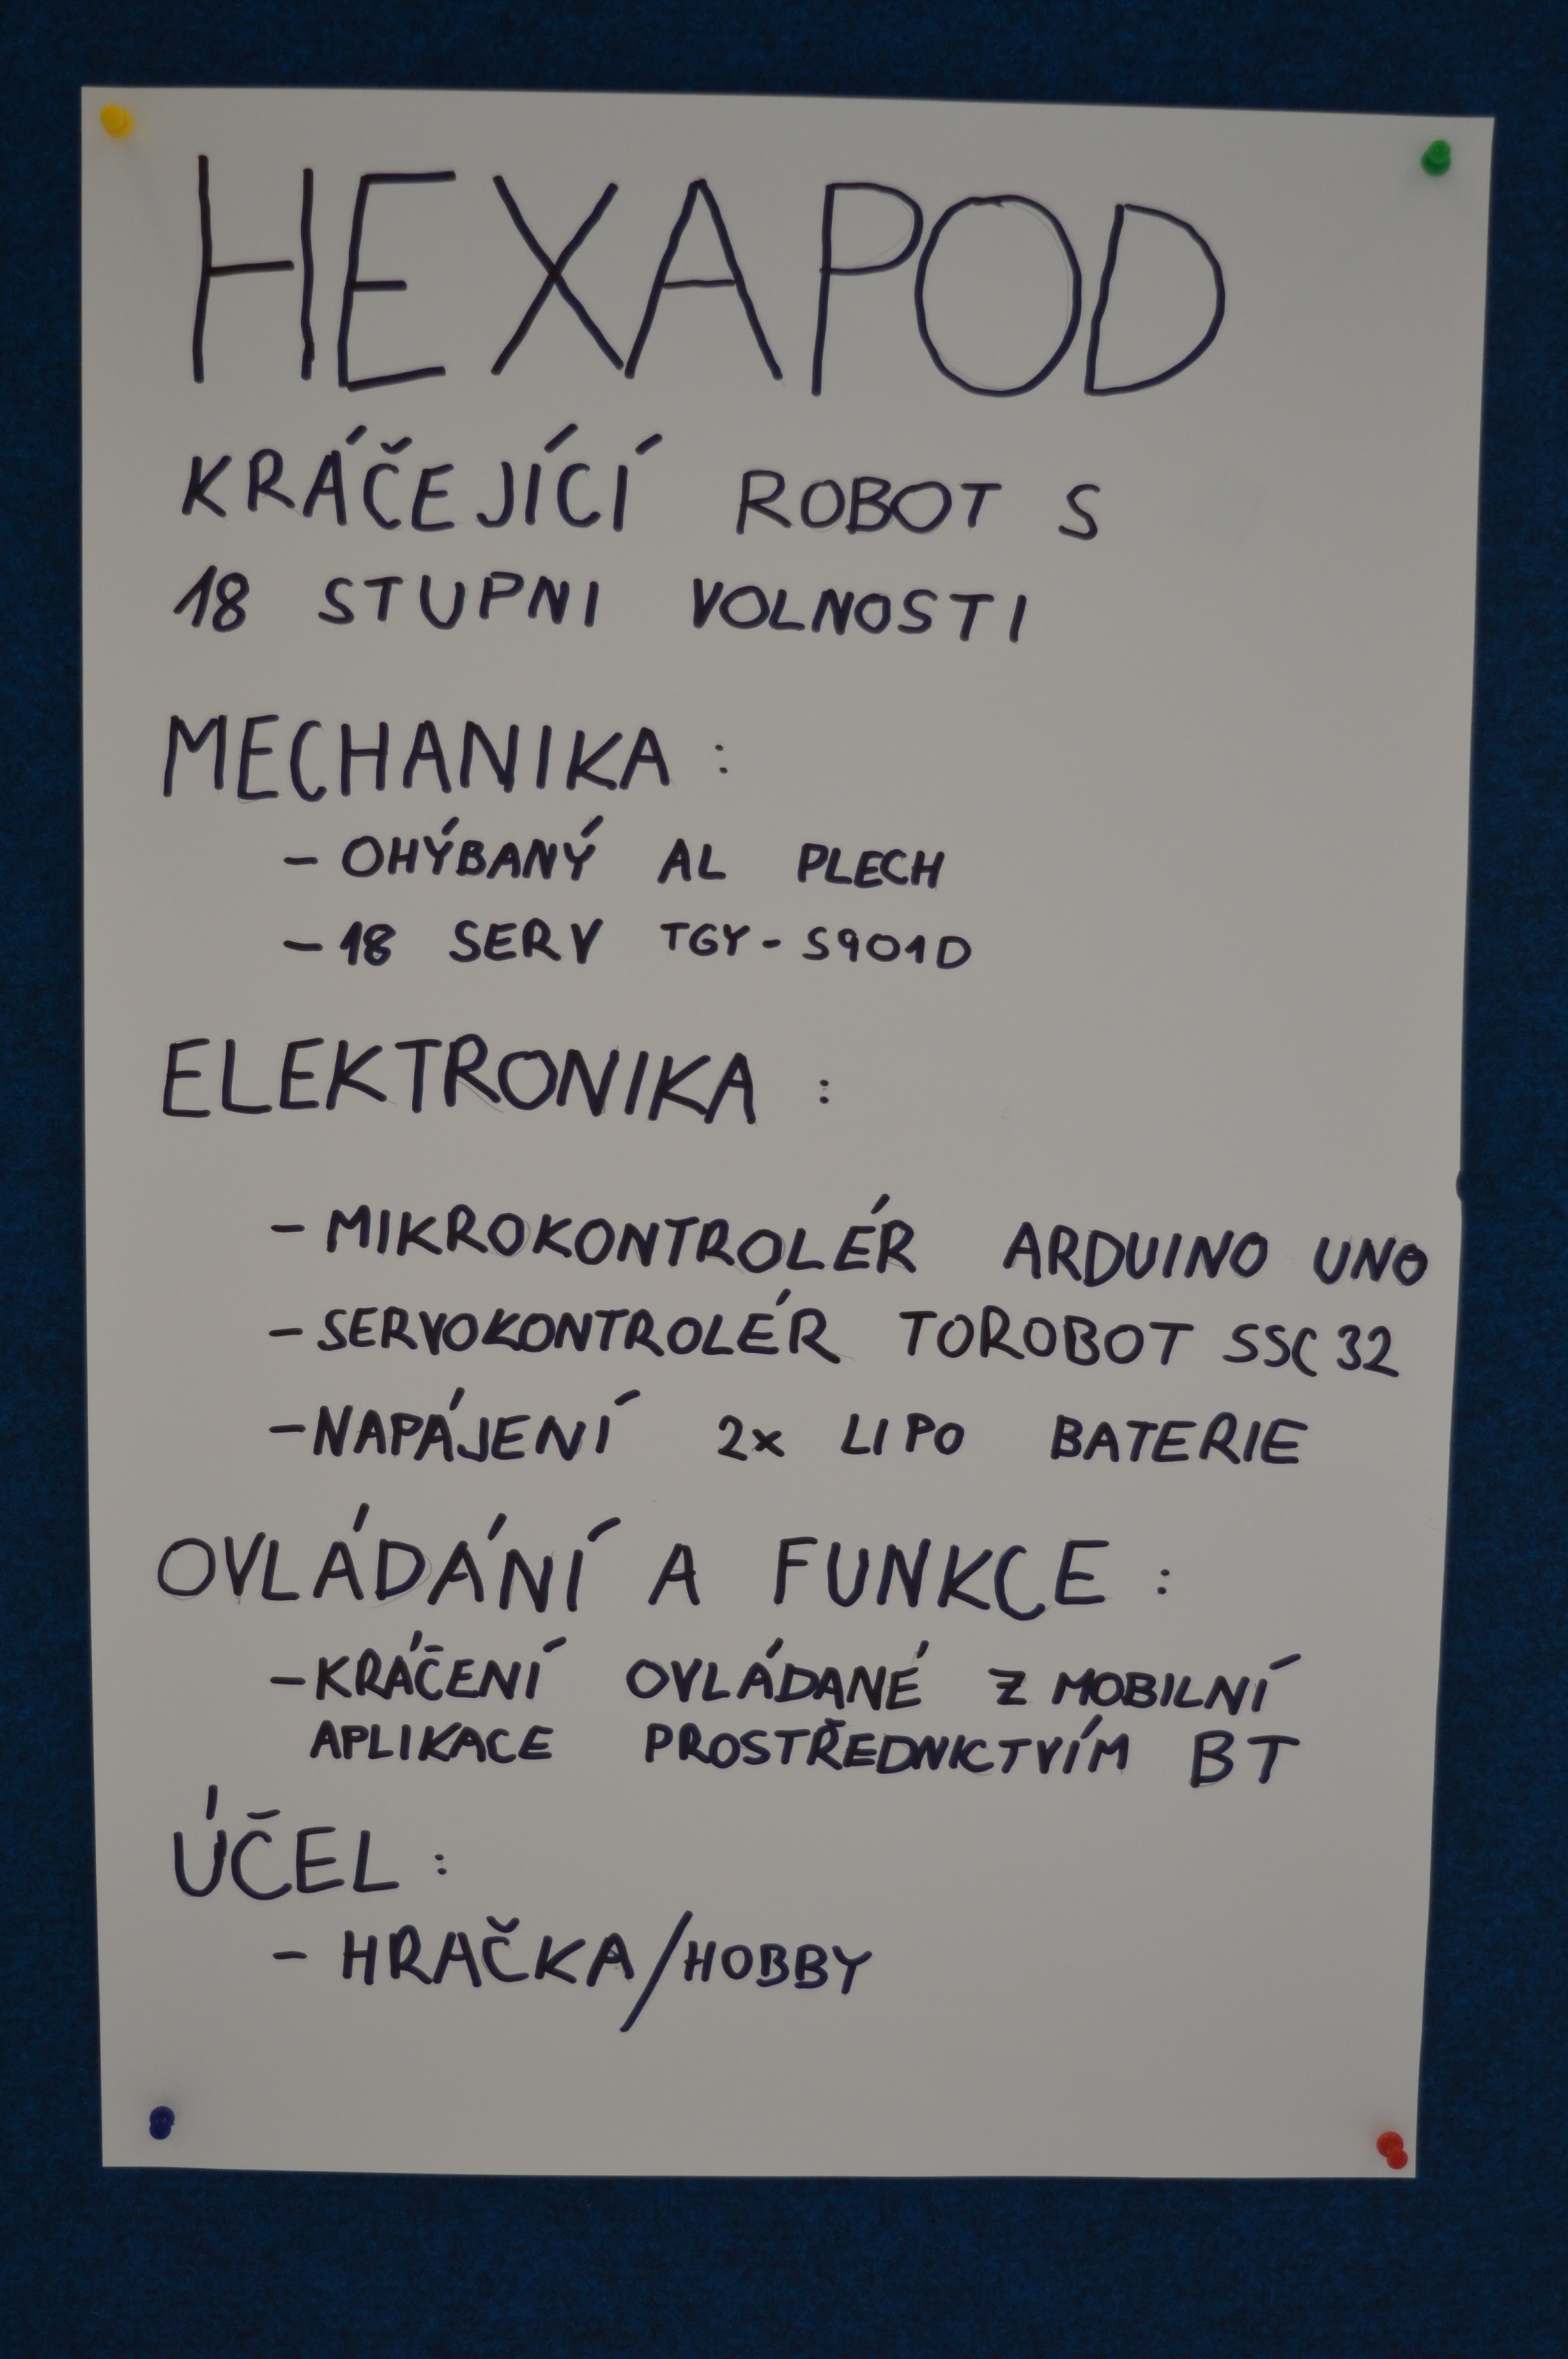 HEXAPOD
KRÁČEJÍCÍ ROBOT S
18 STUPNI VOLNOSTI
MECHANIKA :
- OHÝBANÝ AL PLECH
- 18 SERV TGY - S901D
ELEKTRONIKA :
- MIKROKONTROLÉR ARDUINO UNO
- SERVOKONTROLÉR TOROBOT SSC 32
- NAPÁJENÍ 2x LIPO BATERIE
OVLÁDÁNÍ A FUNKCE :
- KRÁČENÍ OVLÁDANÉ Z MOBILNÍ
APLIKACE PROSTŘEDNICTVÍM BT
ÚČEL :
- HRAČKA/HOBBY